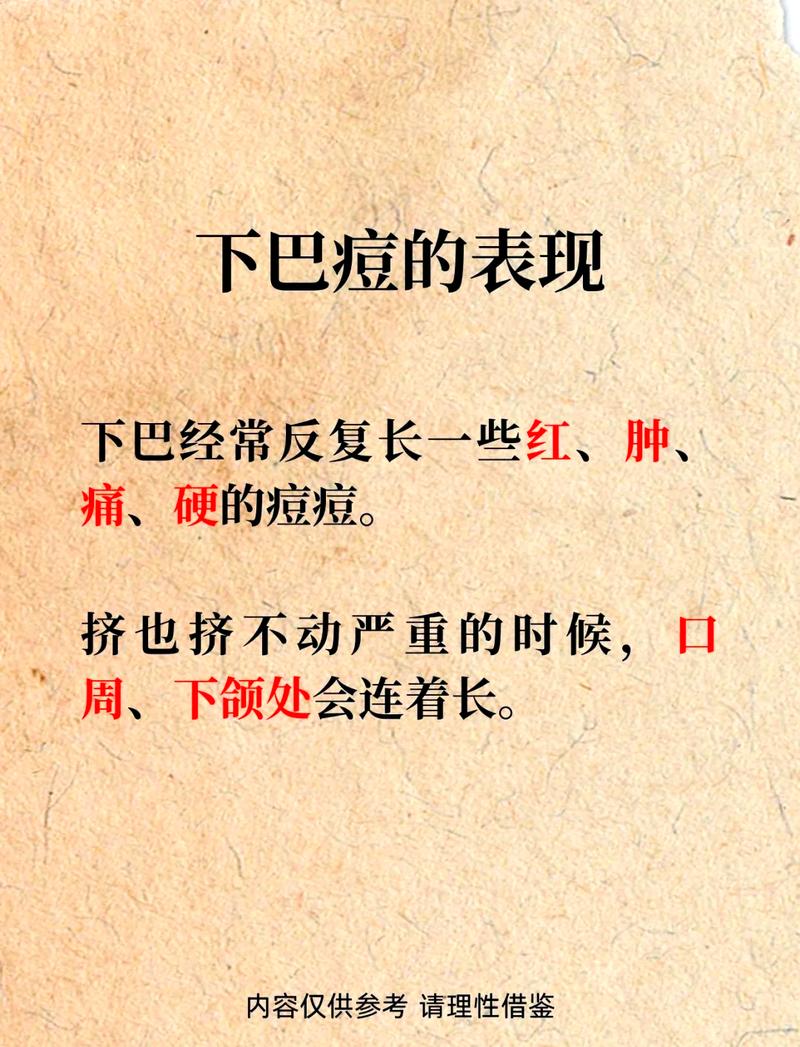 下巴痘的表现
下巴经常反复长一些红、肿、
痛、硬的痘痘。
挤也挤不动严重的时候，口
周、下颌处会连着长。
内容仅供参考 请理性借鉴